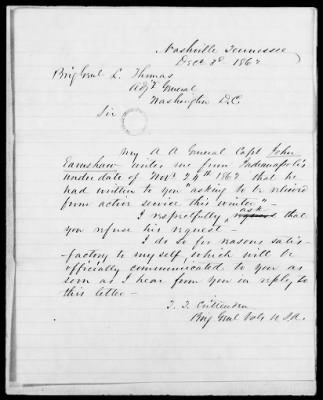 Nashville Tennessee
Decr 3d 1862
Brig Genl L. Thomas
Adjt General
Washington D.C.
Sir
My A A General Capt John
Earnshaw writes me from Indianapolis
under date of Novr 24th 1862 that he
had written to you "asking to be relieved
from active service this winter" -
I respectfully ask that
you refuse his request -
I do so for reasons satis-
-factory to myself, which will be
officially communicated to you as
soon as I hear from you in reply to
this letter -
T. T. Crittenden
Brig Genl Vols U.S.A.